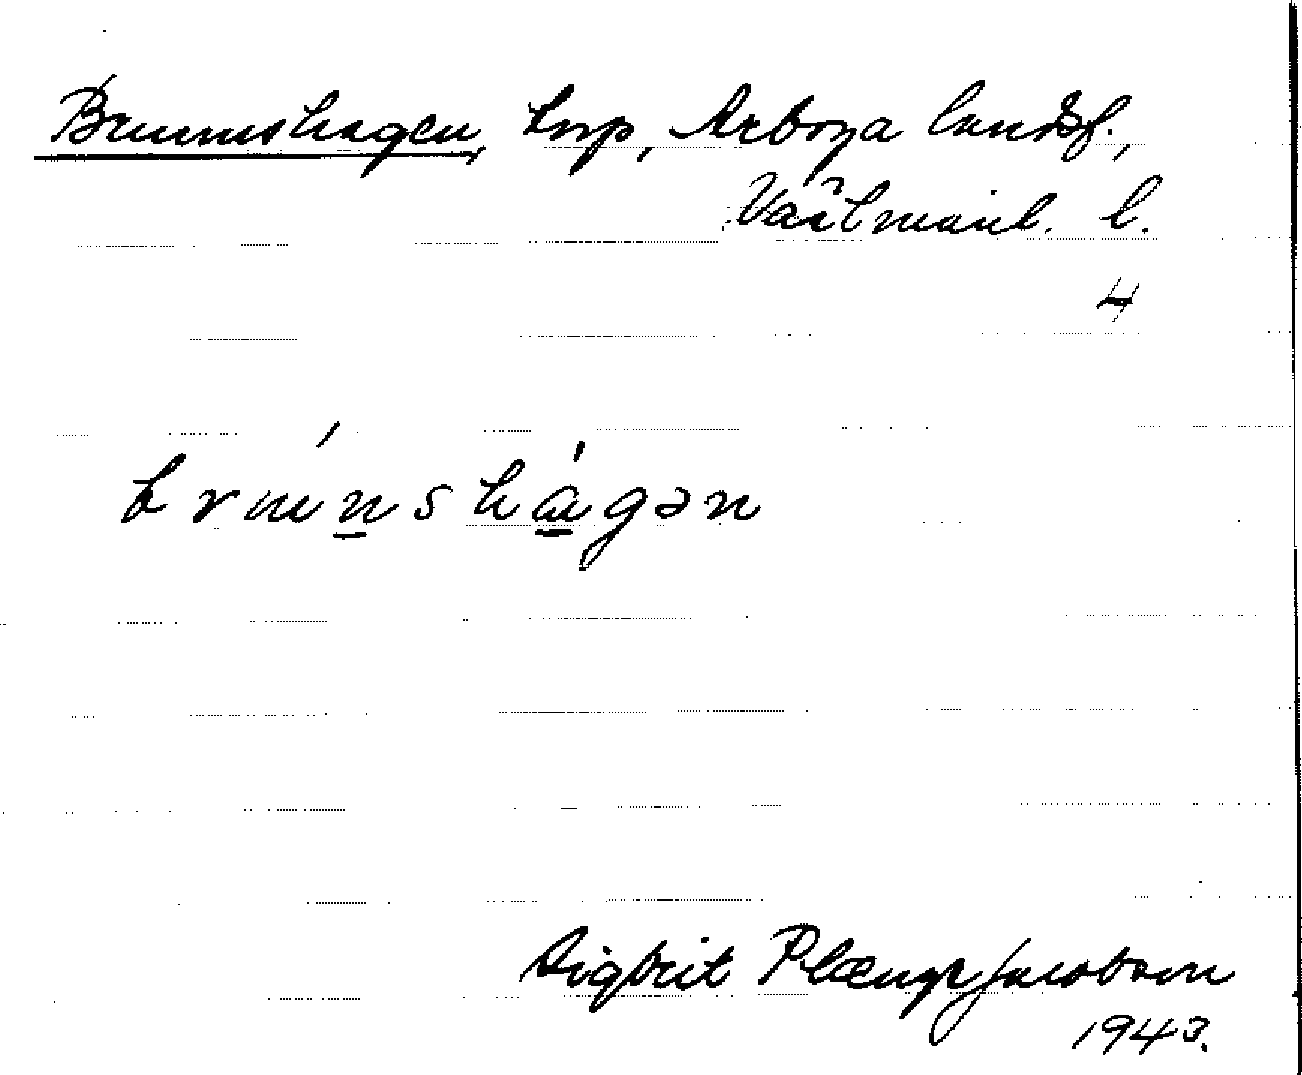 Brunnshagen, torp, Arboga landsf.,
Västmanl. l.
4
brun̲shágən
Sigbrit Plænge Jacobson
1943.